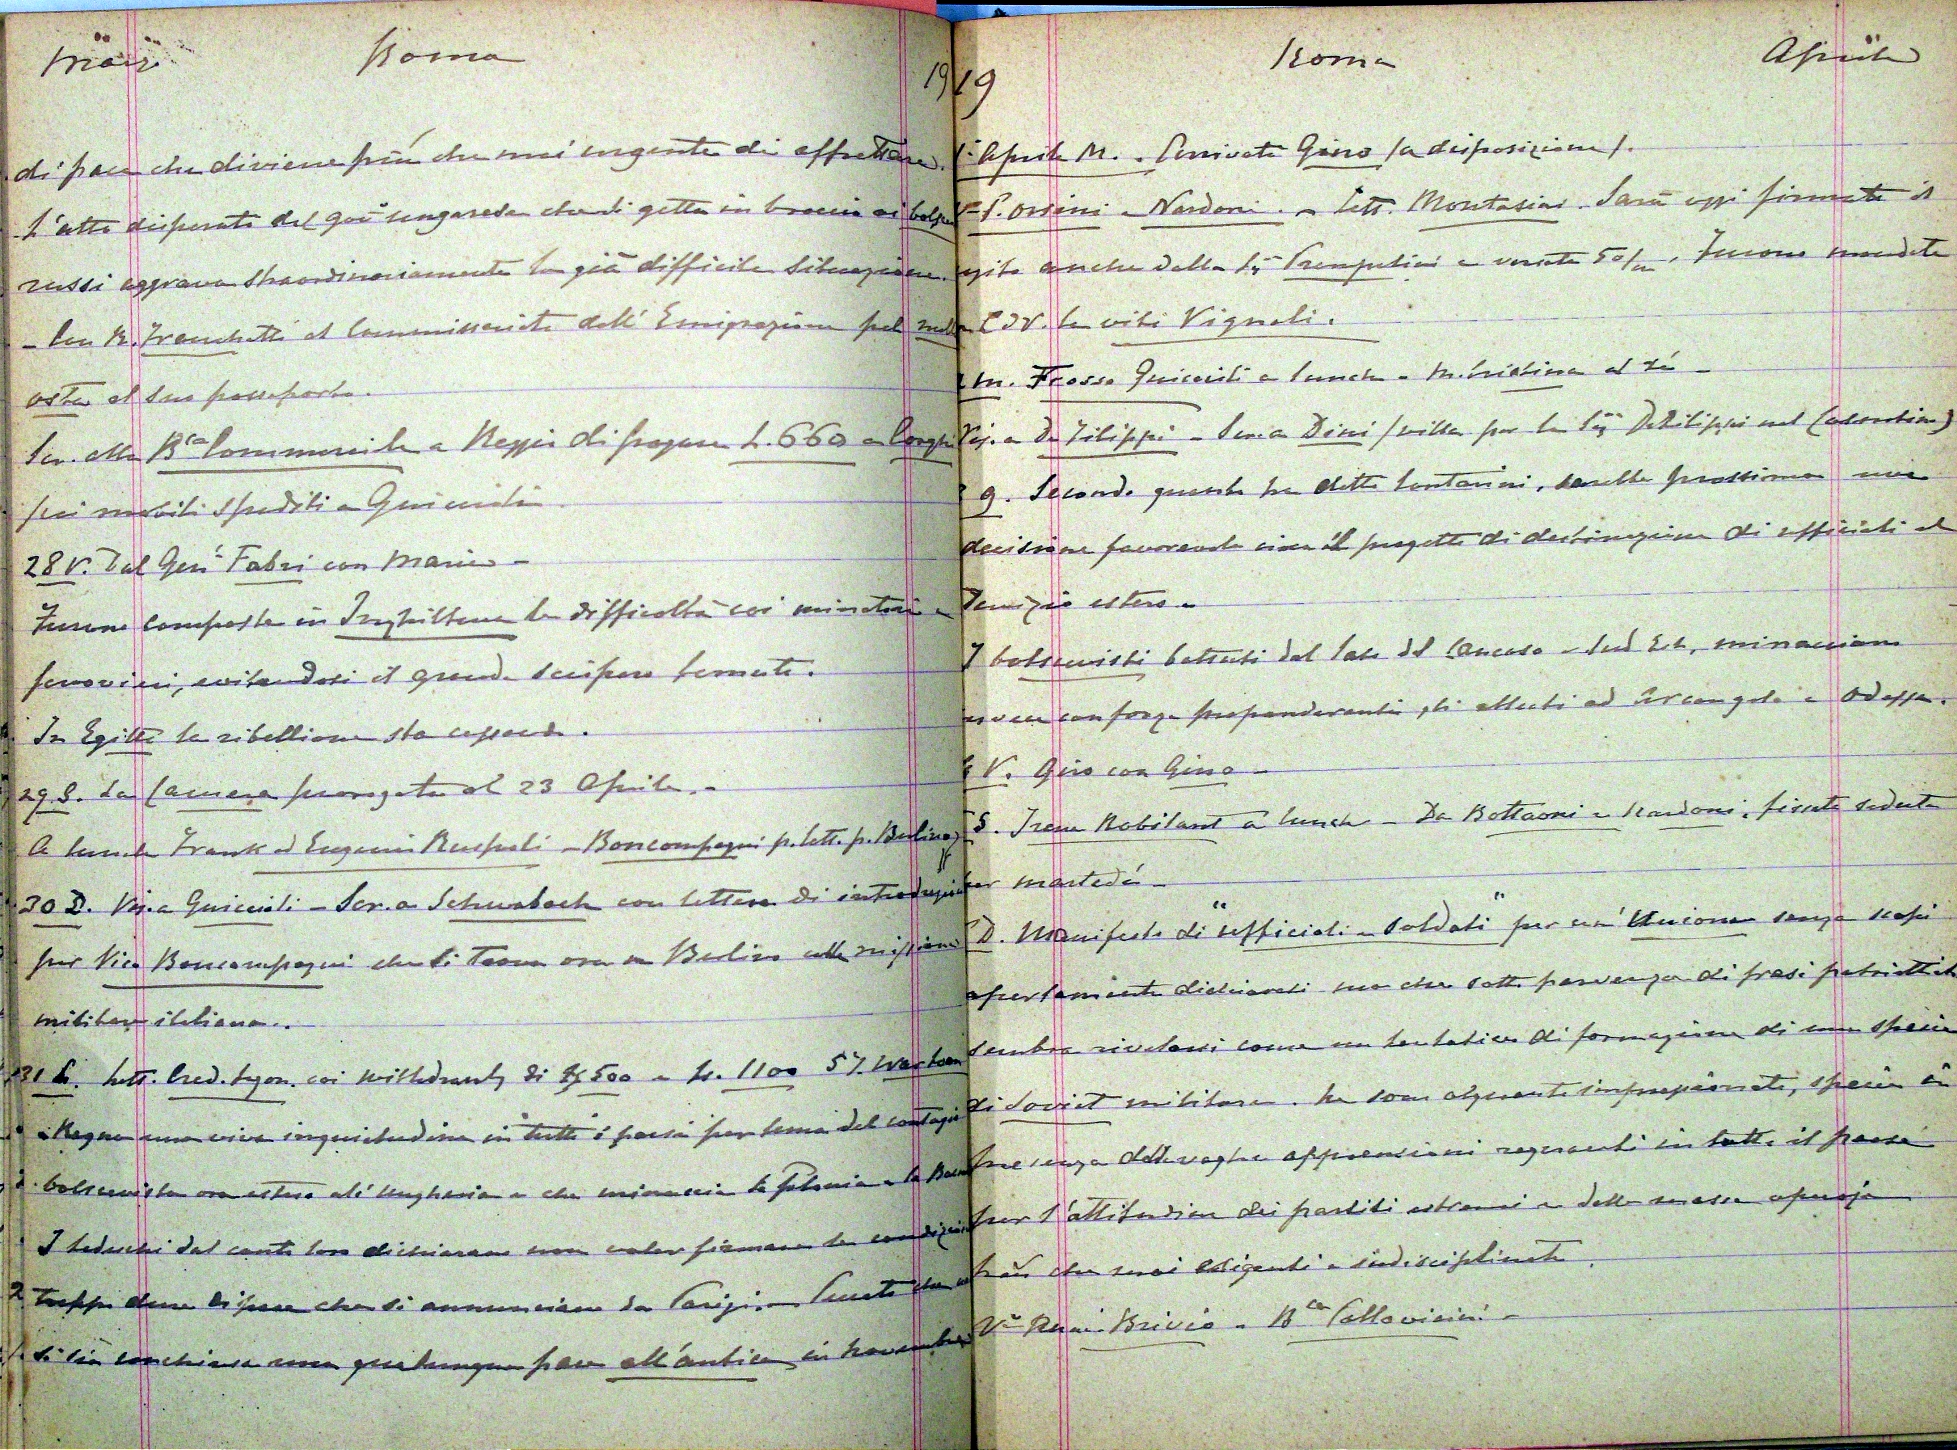 Marzo Roma 19
di pace che diviene più che mai urgente di affrettare.
L'atto disperato del gov° ungarese che si getta in braccio ai bolsc
russi aggrava straordinariamente la già difficile situazione.
- Con R. Franchetti al Commissariato dell'Emigrazione pel
osta al suo passaporto.
Scr. alla B.ca Commerciale a Reggio di pagare L. 660 a Longhi
pei mobili spediti a Guicciardi
28 V. Dal Gen. Fabri con Mario -
Furono composte in Inghilterra le difficoltà coi minatori e
ferrovieri, evitandosi il grande sciopero temuto.
In Egitto la ribellione sta cessando.
29 S. La Camera prorogata al 23 Aprile. -
A lunch Frank ed Eugenia Ruspoli - Boncompagni p. lett. p. Berlino
30 D. Vis. a Guicciardi - Scr. a Schwabach con lettera di introduzione
per Vico Boncompagni che si trova ora a Berlino colla missione
militare italiana. -
31 L. Lett. Cred. Lyon. coi di 500 e L. 1100 5% War Loan
- Regna una viva inquietudine in tutti i paesi per tema del contagio
bolscevista ora esteso all'Ungheria e che minaccia la Polonia e la
I tedeschi dal canto loro dichiarano non voler firmare le condizioni
troppo dure di pace che si annunciano da Parigi. - Peccato che
si sia conchiusa una qualunque pace all'antica in Novembre
19 Roma Aprile
1° Aprile M. - Arrivato Gino (a disposizione).
V° P. Orsini - Nardoni. - Lett. Montasini. Sarà oggi firmato il
anche dalla Sig.ra e versate 50/m. Furono mandate
C d V. le viti Vignoli.
2 m. Frasso Guicciardi a lunch - M. Cristina al tè -
Vis. a De Filippi - Scr. a Dini (villa per la Sig.ra De Filippi nel Casentino)
3 g. Secondo quanto ha detto Contarini, sarebbe prossima una
decisione favorevole circa il progetto di destinazione di ufficiali al
servizio estero -
I bolscevisti battuti dal lato del Caucaso e Sud Est, minacciano
invece con forze preponderanti gli alleati ad Arcangelo e Odessa.
4 V. Giro con Gino -
5 S. Irene Robilant a lunch - Da Bottaoni e Nardoni, fissata seduta
per martedì -
6 D. Manifesto di "ufficiali e soldati" per un'Unione senza scopi
apertamente dichiarati ma che sotto parvenza di frasi patriottiche
sembra rivelarsi come un tentativo di formazione di una specie
di Soviet militare. Ne sono alquanto impressionato, specie in
presenza delle vaghe apprensioni regnanti in tutto il paese
per l'attitudine dei partiti estremi e delle masse operaje
più che mai esigenti e indisciplinate.
V° Brivio - B.ca Pallavicini -